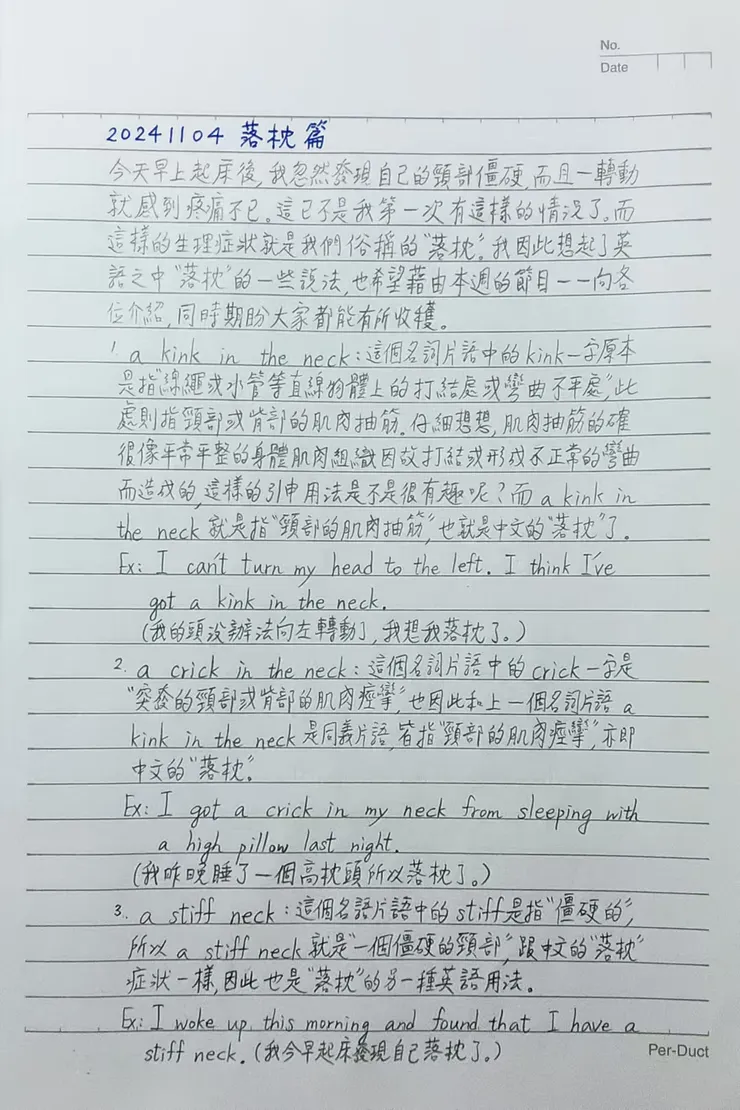 No.
Date
20241104 落枕篇
今天早上起床後,我忽然發現自己的頸部僵硬,而且一轉動
就感到疼痛不已。這已不是我第一次有這樣的情況了。而
這樣的生理症狀就是我們俗稱的"落枕"。我因此想起了英
語之中"落枕"的一些說法,也希望藉由本週的節目一一向各
位介紹,同時期盼大家都能有所收穫。
1. a kink in the neck:這個名詞片語中的kink一字原本
是指"線繩或水管等直線物體上的打結處或彎曲不平處",此
處則指頸部或背部的肌肉抽筋。仔細想想,肌肉抽筋的確
很像平常平整的身體肌肉組織因故打結或形成不正常的彎曲
而造成的,這樣的引申用法是不是很有趣呢?而a kink in
the neck就是指"頸部的肌肉抽筋",也就是中文的"落枕"了。
Ex: I can't turn my head to the left. I think I've
got a kink in the neck.
(我的頭沒辦法向左轉動了,我想我落枕了。)
2. a crick in the neck:這個名詞片語中的crick一字是
"突發的頸部或背部的肌肉痙攣",也因此和上一個名詞片語a
kink in the neck是同義片語,皆指"頸部的肌肉痙攣",亦即
中文的"落枕"。
Ex: I got a crick in my neck from sleeping with
a high pillow last night.
(我昨晚睡了一個高枕頭所以落枕了。)
3. a stiff neck:這個名語片語中的stiff是指"僵硬的",
所以a stiff neck就是"一個僵硬的頸部",跟中文的"落枕"
症狀一樣,因此也是"落枕"的另一種英語用法。
Ex: I woke up this morning and found that I have a
stiff neck.(我今早起床發現自己落枕了。)
Per-Duct